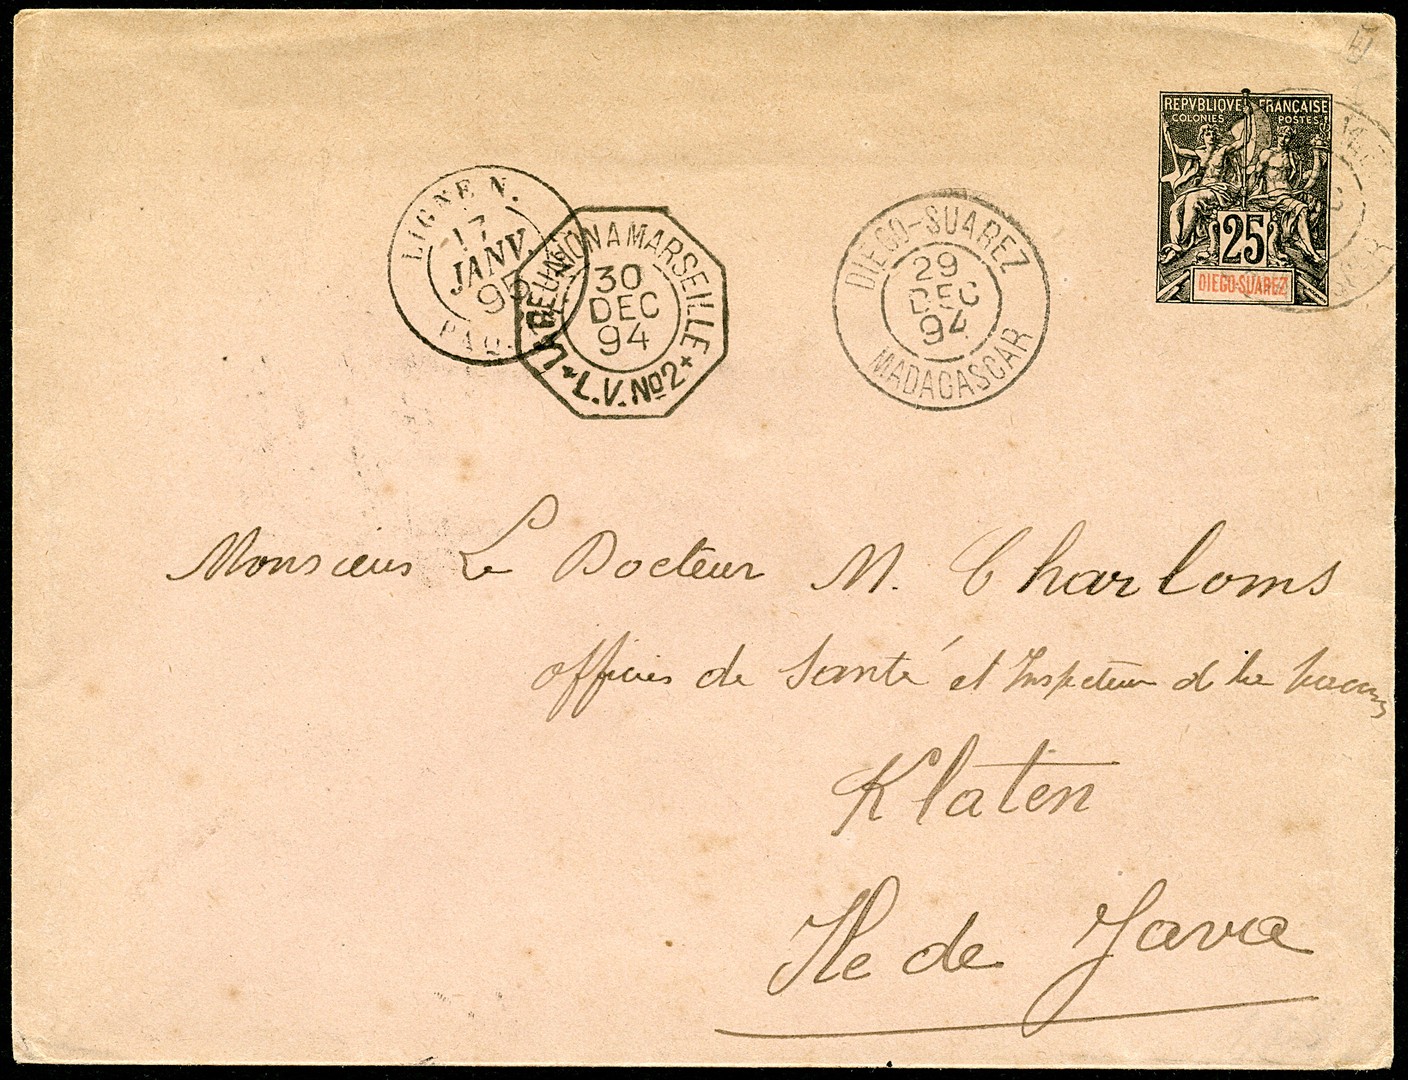 REPVBLIQVE FRANÇAISE
COLONIES POSTES
25
DIEGO-SUAREZ
LIGNE N.
17
JANV.
95
PAQ.
LA REUNION A MARSEILLE
30
DEC
94
L.V. No 2
DIEGO-SUAREZ
29
DEC
94
MADAGASCAR
Monsieur Le Docteur M. Charloms
officier de Santé et Inspecteur
Klaten
Ile de Java